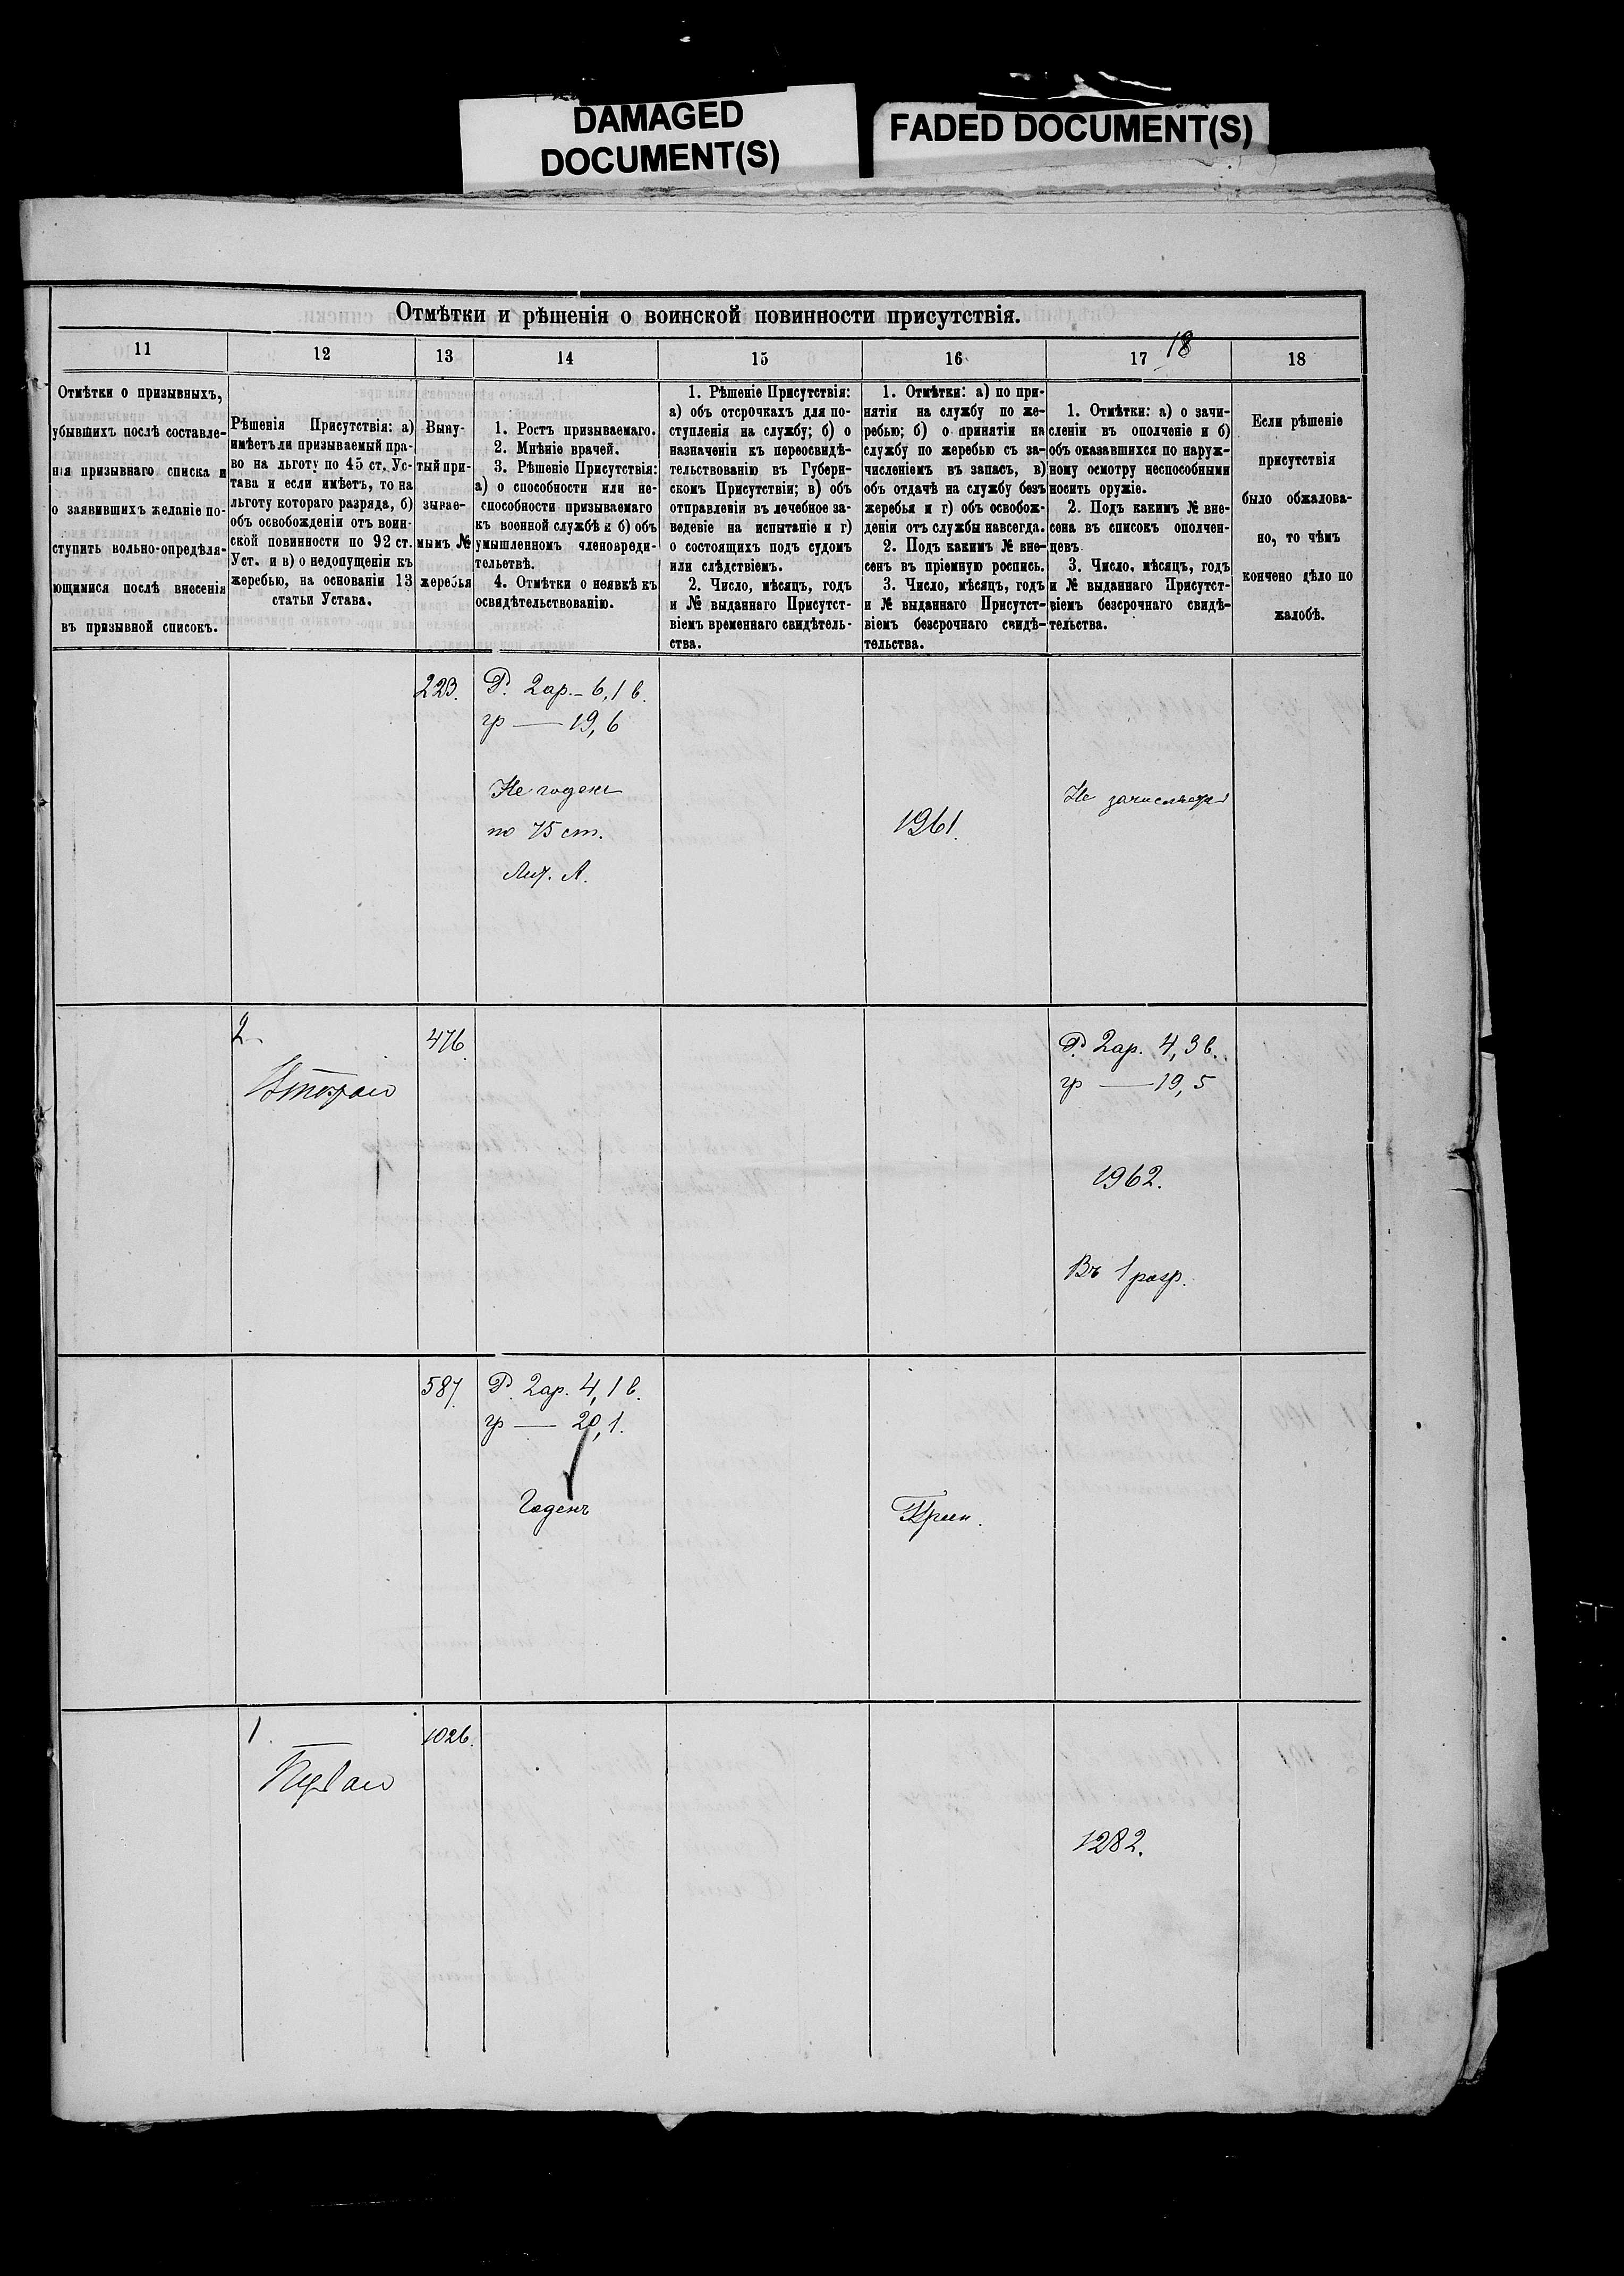 DAMAGED
DOCUMENT(S)
FADED DOCUMENT(S)
Отмѣтки и рѣшенія о воинской повинности присутствія.
18
11
12
13
14
15
16
17
18
Отмѣтки о призывныхъ,
убывшихъ послѣ составле-
нія призывнаго списка и
о заявившихъ желаніе по-
ступить вольно-опредѣля-
ющимися послѣ внесенія
въ призывной списокъ.
Рѣшенія Присутствія: а)
имѣетъ ли призываемый пра-
во на льготу по 45 ст. Ус-
тава и если имѣетъ, то на
льготу котораго разряда, б)
объ освобожденіи отъ воин-
ской повинности по 92 ст.
Уст. и в) о недопущеніи къ
жеребью, на основаніи 13
статьи Устава.
Выну-
тый при-
зывае-
мымъ №
жеребья
1. Ростъ призываемаго.
2. Мнѣніе врачей.
3. Рѣшеніе Присутствія:
а) о способности или не-
способности призываемаго
къ военной службѣ и б) объ
умышленномъ членовреди-
тельствѣ.
4. Отмѣтки о неявкѣ къ
освидѣтельствованію.
1. Рѣшеніе Присутствія:
а) объ отсрочкахъ для по-
ступленія на службу; б) о
назначеніи къ переосвидѣ-
тельствованію въ Губерн-
скомъ Присутствіи; в) объ
отправленіи въ лечебное за-
веденіе на испытаніе и г)
о состоящихъ подъ судомъ
или слѣдствіемъ.
2. Число, мѣсяцъ, годъ
и № выданнаго Присутст-
віемъ временнаго свидѣтель-
ства.
1. Отмѣтки: а) по при-
нятіи на службу по же-
ребью; б) о принятіи на
службу по жеребью съ за-
численіемъ въ запасъ, в)
объ отдачѣ на службу безъ
жеребья и г) объ освобож-
деніи отъ службы навсегда.
2. Подъ какимъ № вне-
сенъ въ пріемную роспись.
3. Число, мѣсяцъ, годъ
и № выданнаго Присутст-
віемъ безсрочнаго свидѣ-
тельства.
1. Отмѣтки: а) о зачи-
сленіи въ ополченіе и б)
объ оказавшихся по наруж-
ному осмотру неспособными
носить оружіе.
2. Подъ какимъ № вне-
сена въ списокъ ополчен-
цевъ.
3. Число, мѣсяцъ, годъ
и № выданнаго Присутст-
віемъ безсрочнаго свидѣ-
тельства.
Если рѣшеніе
присутствія
было обжалова-
но, то чѣмъ
кончено дѣло по
жалобѣ.
223.
Р. 2ар.– 6,1 в.
гр — 19,6
Не годенъ
по 75 ст.
Лит. А.
1961.
Не зачисляется
2
Второю
476.
Р. 2ар. 4,3 в.
гр — 19,5
1962.
Въ 1 разр.
587.
Р. 2ар. 4,1 в.
гр — 20,1.
Годенъ
1
1026.
1282.